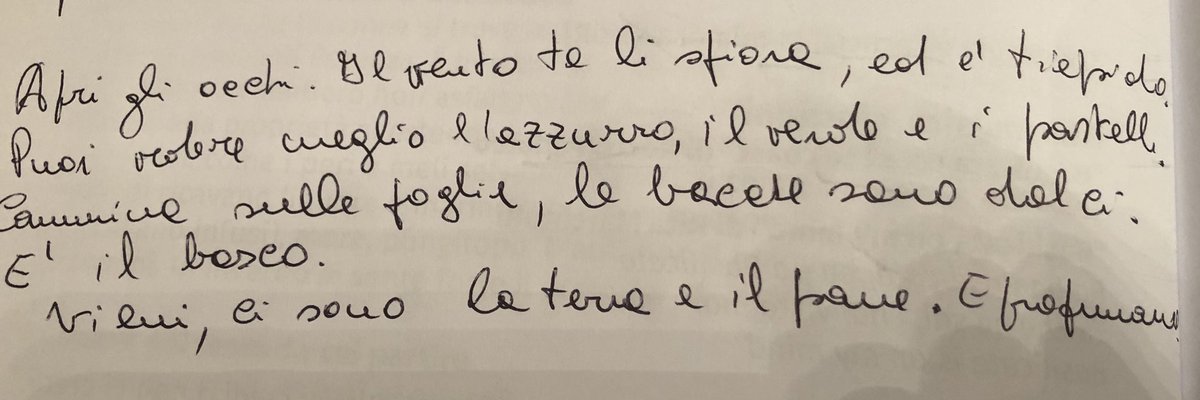 Apri gli occhi. Il vento te li sfiora, ed e' tiepido.
Puoi vedere meglio l'azzurro, il verde e i pastelli.
Cammina sulle foglie, le bacche sono dolci.
E' il bosco.
Vieni, ci sono la terra e il pane. E profumano.